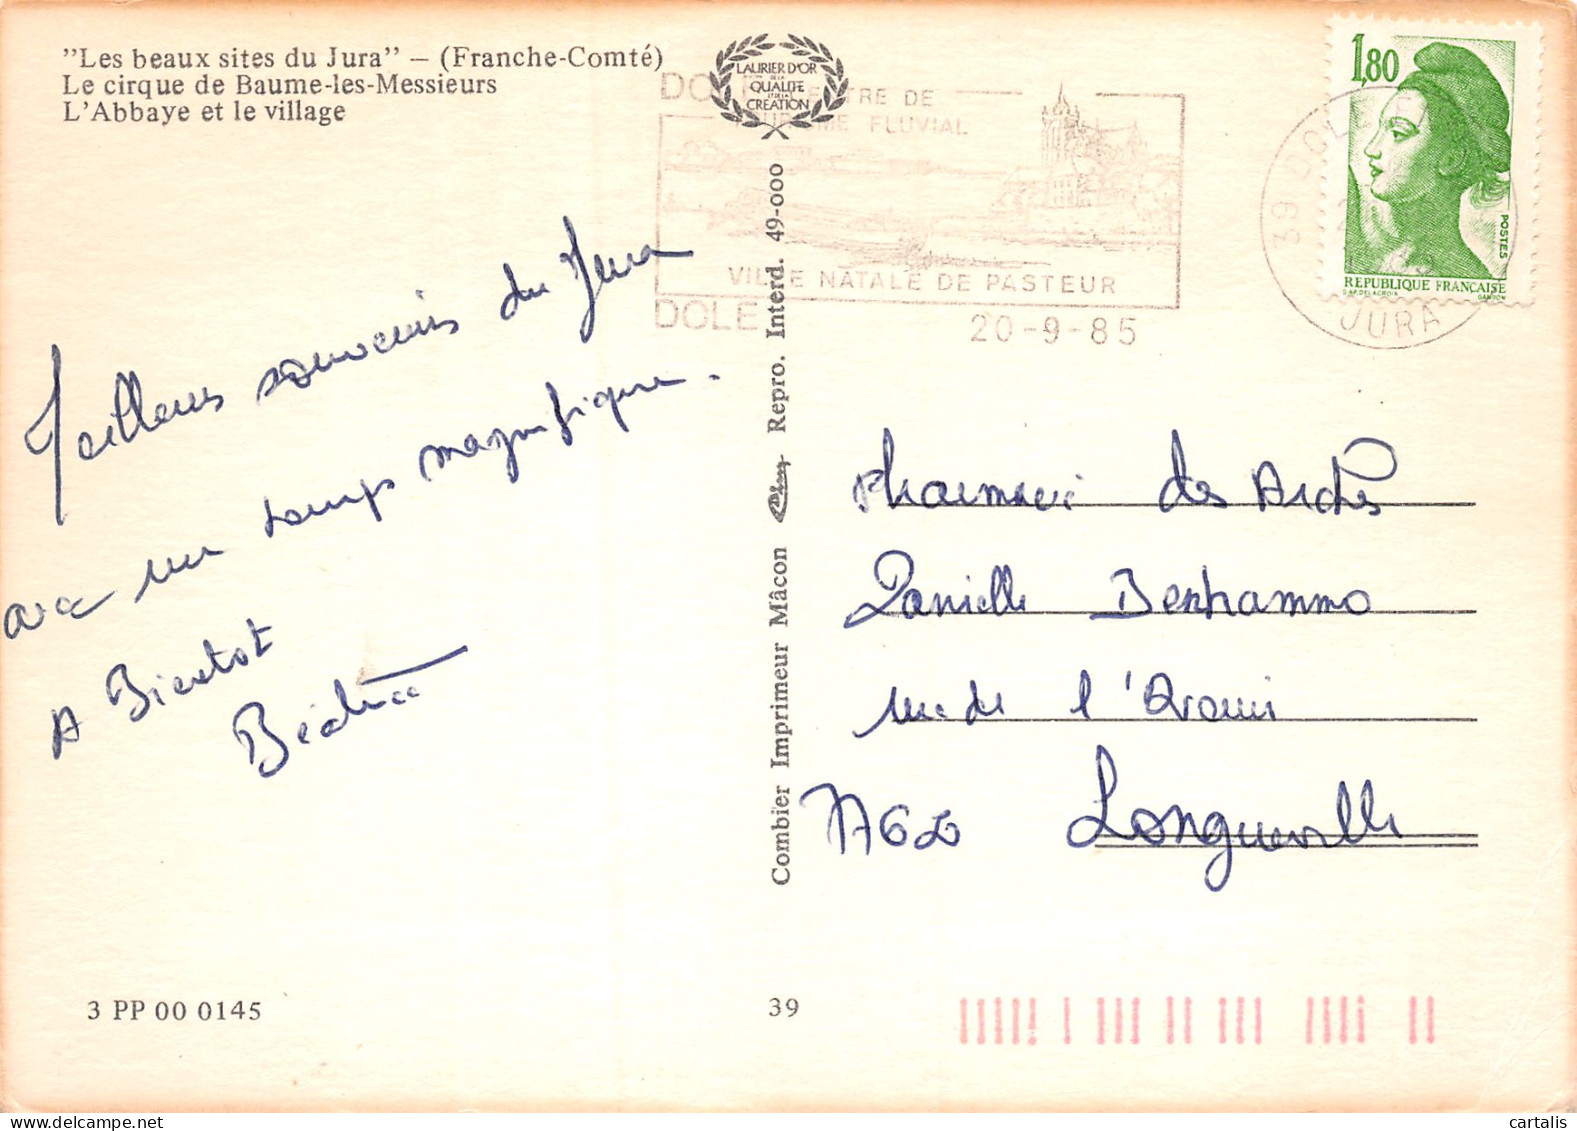 "Les beaux sites du Jura" – (Franche-Comté)
Le cirque de Baume-les-Messieurs
L'Abbaye et le village
LAURIER D'OR
DE LA
QUALITE
ET DE LA
CREATION
DE
FLUVIAL
VILLE NATALE DE PASTEUR
DOLE
20-9-85
39 DOLE
JURA
1,80
POSTES
REPUBLIQUE FRANÇAISE
D'AP. DELACROIX GANDON
Meilleurs souvenirs du Jura
avec un temps magnifique.
A Bientot
Béatrice
Combier Imprimeur Mâcon Repro. Interd. 49-000
Pharmacie des Arches
Danielle Benhammo
rue de l'
77650 Longueville
3 PP 00 0145
39